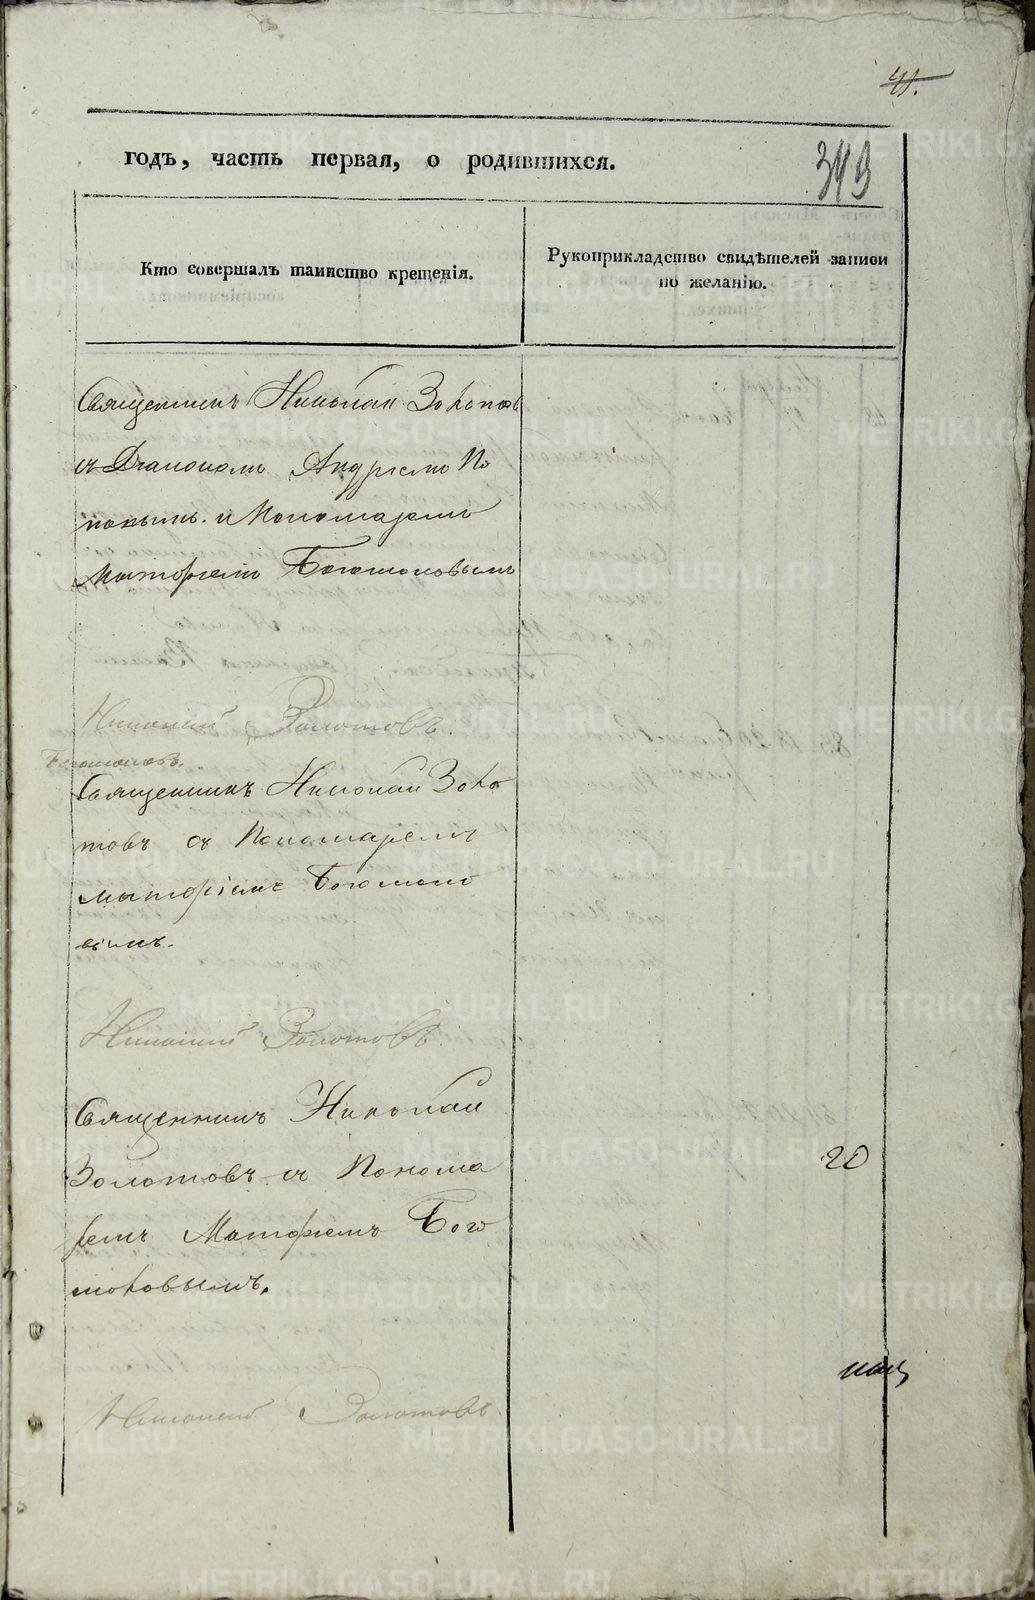 41.
годъ, часть первая, о родившихся.
343
Кто совершалъ таинство крещенія.
Рукоприкладство свидѣтелей записи
по желанію.
Священникъ Николай Золотовъ
съ Діакономъ Андреемъ По
повымъ. и Пономаремъ
Матөеемъ Богомоловымъ
Николай Золотовъ.
Богомоловъ.
Священникъ Николай Золо
товъ съ Пономаремъ
матфіемъ Богомоло
вымъ.
Николай Золотовъ.
Священникъ Николай
Золотовъ съ Понома
ремъ Матфіемъ Бого
моловымъ.
20
Николай Золотовъ.
METRIKI.GASO-URAL.RU